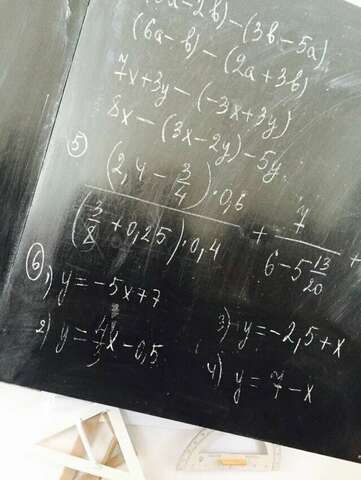 a-2b)-(3b-5a)
(6a-b)-(2a+3b)
7x+3y-(-3x+3y)
8x-(3x-2y)-5y
5) (2,4-3/4)·0,6 / (3/8+0,25)·0,4 + 7 / 6-5 13/20 +
6) 1) y=-5x+7
2) y=4/3x-0,5
3) y=-2,5+x
4) y=-x